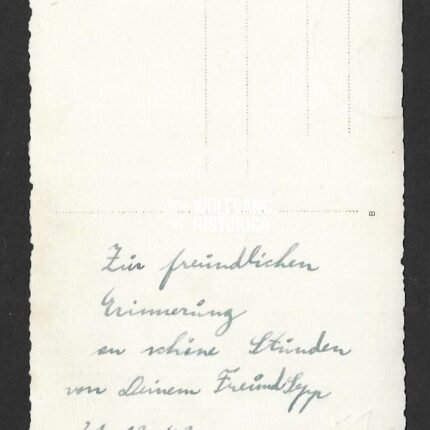 WOLFGANG
HISTORICA
8
Zur freundlichen
Erinnerung
an schöne Stunden
von Deinem Freund Sepp